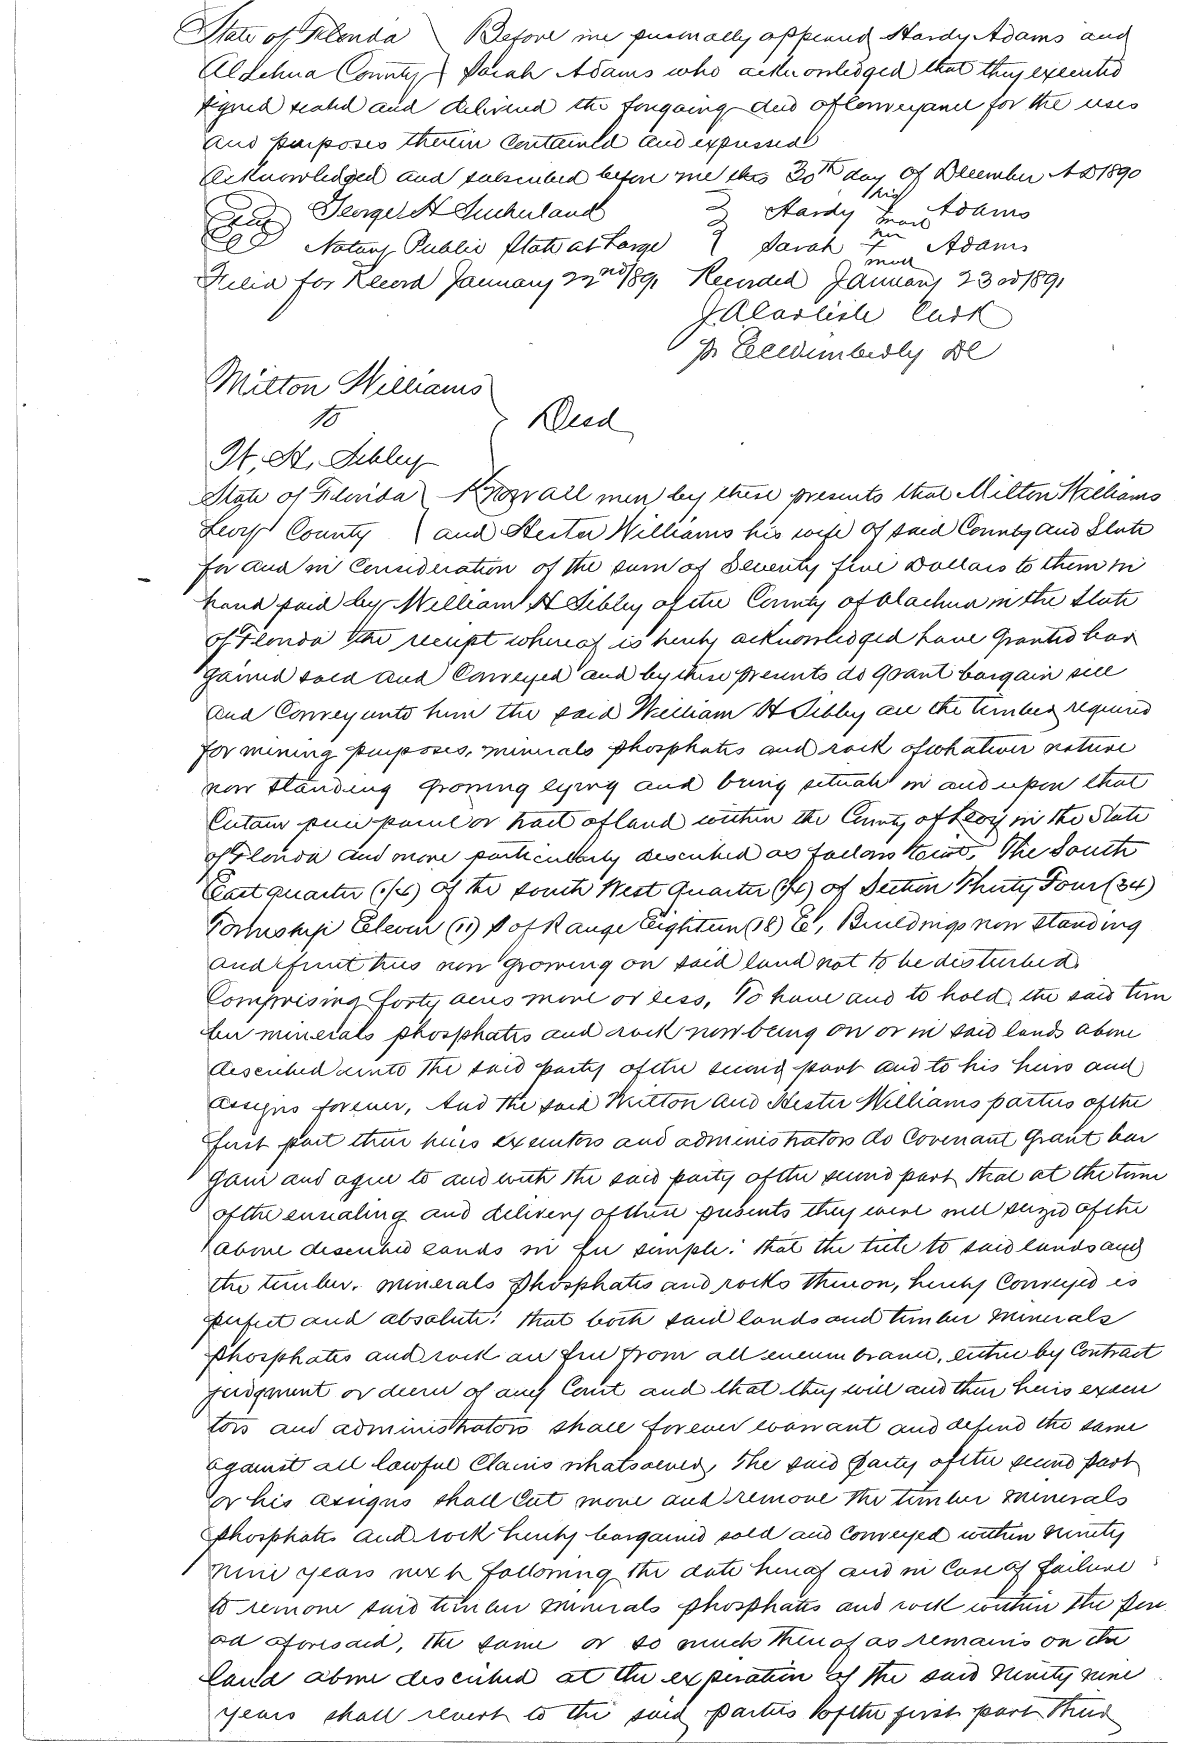 State of Florida } Before me personally appeared Hardy Adams and
Alachua County } Sarah Adams who acknowledged that they executed
signed sealed and delivered the foregoing deed of Conveyance for the uses
and purposes therein contained and expressed
Acknowledged and subscribed before me this 30th day of December AD 1890
George H Sutherland } Hardy his mark Adams
Seal Notary Public State at Large } Sarah her + mark Adams
Filed for Record January 22nd 1891 Recorded January 23rd 1891
J A Carlisle Clerk
pr E C Wimberly DC
Milton Williams
to } Deed
W. H. Sibley
State of Florida } Know all men by these presents that Milton Williams
Levy County } and Hester Williams his wife of said County and State
for and in Consideration of the sum of Seventy five Dollars to them in
hand paid by William H Sibley of the County of Alachua in the State
of Florida the receipt whereof is hereby acknowledged have granted bar
gained sold and Conveyed and by these presents do grant bargain sell
and Convey unto him the said William H Sibley all the timber required
for mining purposes, minerals phosphates and rock of whatever nature
now standing growing lying and being situate in and upon that
Certain piece parcel or tract of land within the County of Levy in the State
of Florida and more particularly described as follows towit. The South
East quarter (1/4) of the South West Quarter (1/4) of Section Thirty Four (34)
Township Eleven (11) S of Range Eighteen (18) E, Buildings now standing
and fruit trees now growing on said land not to be disturbed.
Comprising forty acres more or less, To have and to hold, the said tim
ber minerals phosphates and rock now being on or in said lands above
described unto the said party of the second part and to his heirs and
assigns forever, And the said Milton and Hester Williams parties of the
first part their heirs executors and administrators do Covenant Grant bar
gain and agree to and with the said party of the second part that at the time
of the ensealing and delivery of these presents they were well seized of the
above described lands in fee simple: that the title to said lands and
the timber, minerals phosphates and rocks thereon, hereby Conveyed is
perfect and absolute: that both said lands and timber minerals
phosphates and rock are free from all encumbrance, either by Contract
judgment or decree of any Court and that they will and their heirs execu
tors and administrators shall forever warrant and defend the same
against all lawful Claims whatsoever, The said party of the second part
or his assigns shall Cut move and remove the timber minerals
phosphates and rock hereby bargained sold and Conveyed within ninety
nine years next following the date hereof and in Case of failure
to remove said timber minerals phosphates and rock within the peri
od aforesaid, the same or so much thereof as remains on the
land above described at the expiration of the said ninety nine
years shall revert to the said parties of the first part their